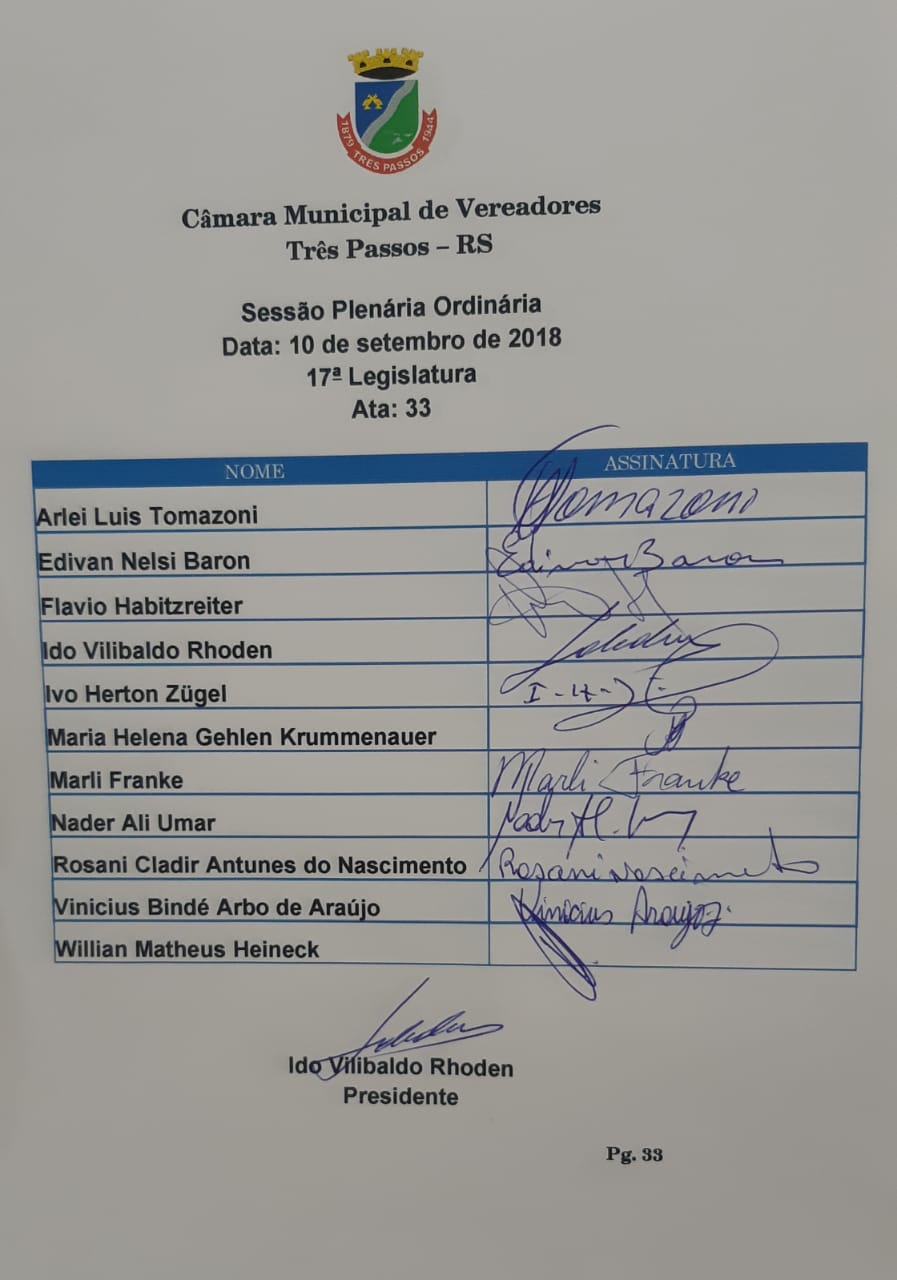 1879 TRÊS PASSOS 1944
Câmara Municipal de Vereadores
Três Passos – RS
Sessão Plenária Ordinária
Data: 10 de setembro de 2018
17ª Legislatura
Ata: 33
NOME ASSINATURA
Arlei Luis Tomazoni Tomazoni
Edivan Nelsi Baron Edivan Baron
Flavio Habitzreiter
Ido Vilibaldo Rhoden
Ivo Herton Zügel I-H-
Maria Helena Gehlen Krummenauer
Marli Franke Marli Franke
Nader Ali Umar
Rosani Cladir Antunes do Nascimento Rosani Nascimento
Vinicius Bindé Arbo de Araújo Vinicius Araújo
Willian Matheus Heineck
Ido Vilibaldo Rhoden
Presidente
Pg. 33